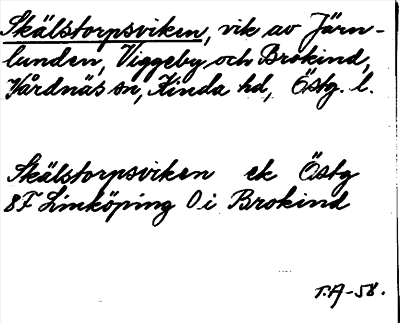 Skälstorpsviken, vik av Järn-
lunden, Viggeby och Brokind,
Vårdnäs sn, Kinda hd, Östg. l.
Skälstorpsviken ek Östg
8F Linköping 0 i Brokind
T.A-58.